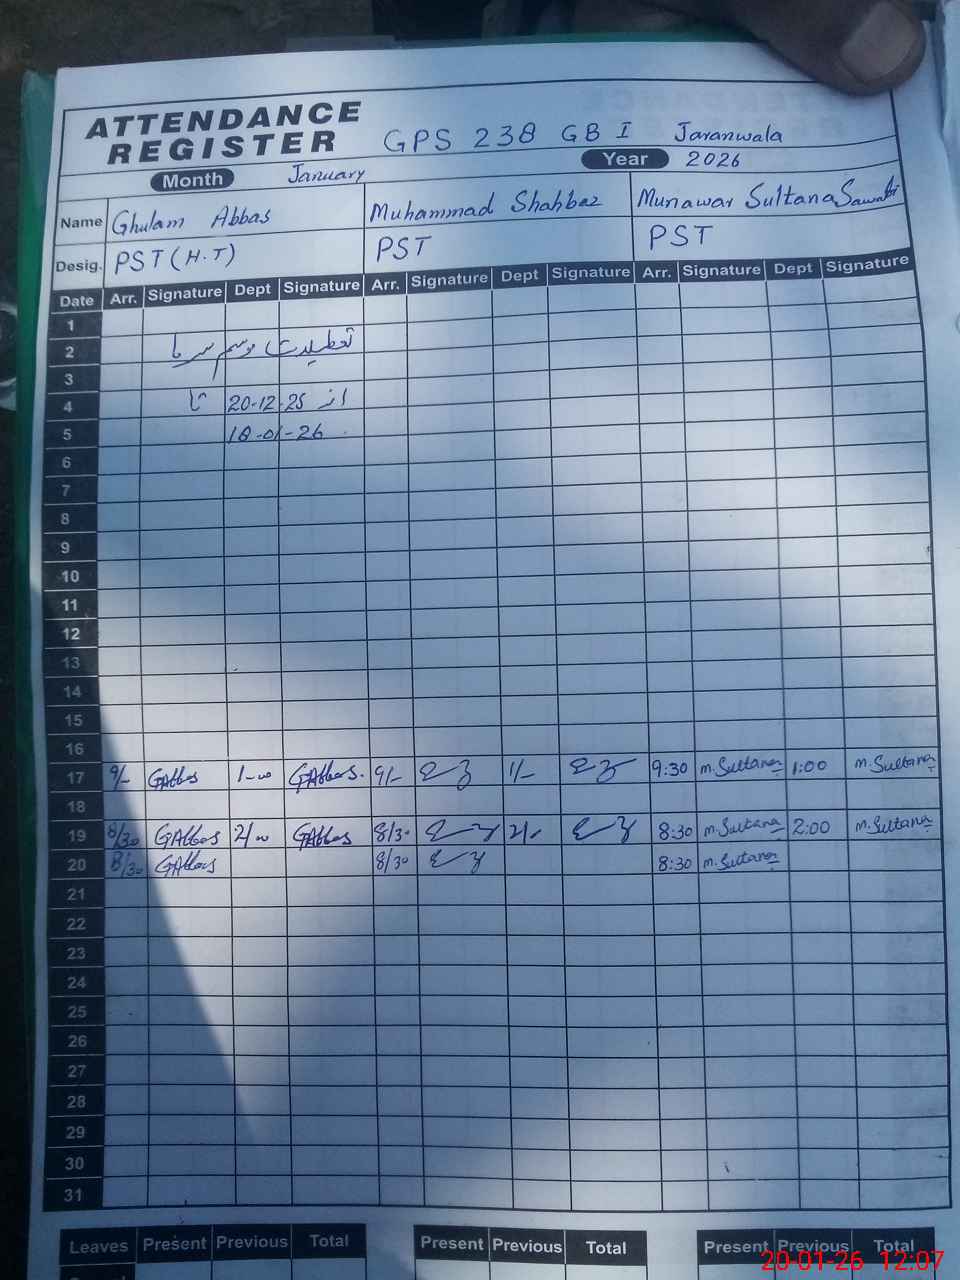 ATTENDANCE REGISTER GPS 238 GB I Jaranwala
Month January Year 2026
Name Ghulam Abbas Muhammad Shahbaz Munawar Sultana
Desig. PST (H.T) PST PST
Date Arr. Signature Dept Signature Arr. Signature Dept Signature Arr. Signature Dept Signature
1
2 تعطیلات موسم سرما
3
4 از 20-12-25 تا
5 18-01-26
6
7
8
9
10
11
12
13
14
15
16
17 9/- GAbbas 1-00 GAbbas. 9/- 1/- 9:30 M.Sultana 1:00 M.Sultana
18
19 8/30 GAbbas 2/00 GAbbas 8/30 2/- 8:30 M.Sultana 2:00 M.Sultana
20 8/30 GAbbas 8/30 8:30 M.Sultana
21
22
23
24
25
26
27
28
29
30
31
Leaves Present Previous Total Present Previous Total Present Previous Total
20-01-26 12:07